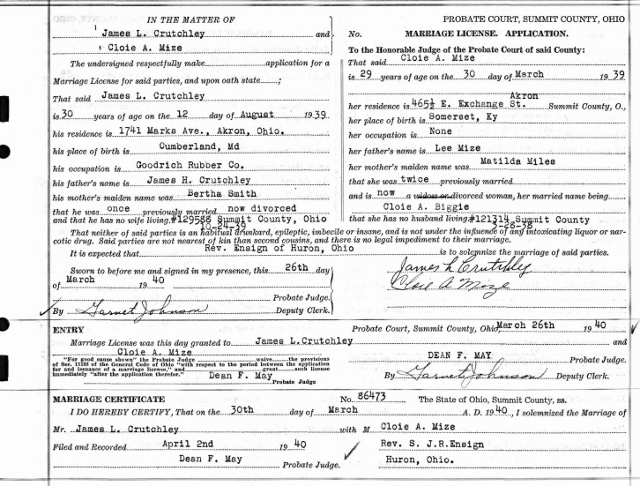 IN THE MATTER OF
James L. Crutchley and
Cloie A. Mize
The undersigned respectfully make application for a
Marriage License for said parties, and upon oath state ;
That said James L. Crutchley
is 30 years of age on the 12 day of August 1939
his residence is 1741 Marks Ave., Akron, Ohio.
his place of birth is Cumberland, Md
his occupation is Goodrich Rubber Co.
his father's name is James H. Crutchley
his mother's maiden name was Bertha Smith
that he was once previously married now divorced
and that he has no wife living. #129588 Summit County, Ohio
10-24-39
PROBATE COURT, SUMMIT COUNTY, OHIO
No. MARRIAGE LICENSE. APPLICATION.
To the Honorable Judge of the Probate Court of said County:
That said Cloie A. Mize
is 29 years of age on the 30 day of March 1939
Akron
her residence is 465½ E. Exchange St. Summit County, O.,
her place of birth is Somerset, Ky
her occupation is None
her father's name is Lee Mize
her mother's maiden name was Matilda Miles
that she was twice previously married
and is now a widow or divorced woman, her married name being
Cloie A. Biggie
that she has no husband living. #121314 Summit County
3-28-38
That neither of said parties is an habitual drunkard, epileptic, imbecile or insane, and is not under the influence of any intoxicating liquor or nar-
cotic drug. Said parties are not nearest of kin than second cousins, and there is no legal impediment to their marriage.
It is expected that Rev. Ensign of Huron, Ohio is to solemnize the marriage of said parties.
Sworn to before me and signed in my presence, this 26th day
of March 1940
Probate Judge.
By Garnet Johnson Deputy Clerk.
James L Crutchley
Cloie A Mize
ENTRY Probate Court, Summit County, Ohio, March 26th 1940
Marriage License was this day granted to James L. Crutchley and
Cloie A. Mize
"For good cause shewn" the Probate Judge waive the provisions
of Sec. 11188 of the General Code of Ohio "with respect to the period between the application
for and issuance of a marriage license," and grant such license
immediately "after the application therefor." Dean F. May
Probate Judge
DEAN F. MAY Probate Judge.
By Garnet Johnson Deputy Clerk.
MARRIAGE CERTIFICATE No. 86473 The State of Ohio, Summit County, ss.
I DO HEREBY CERTIFY, That on the 30th day of March A. D. 1940, I solemnized the Marriage of
Mr. James L. Crutchley with M Cloie A. Mize
Filed and Recorded April 2nd 1940 Rev. S. J.R.Ensign
Dean F. May Probate Judge. Huron, Ohio.